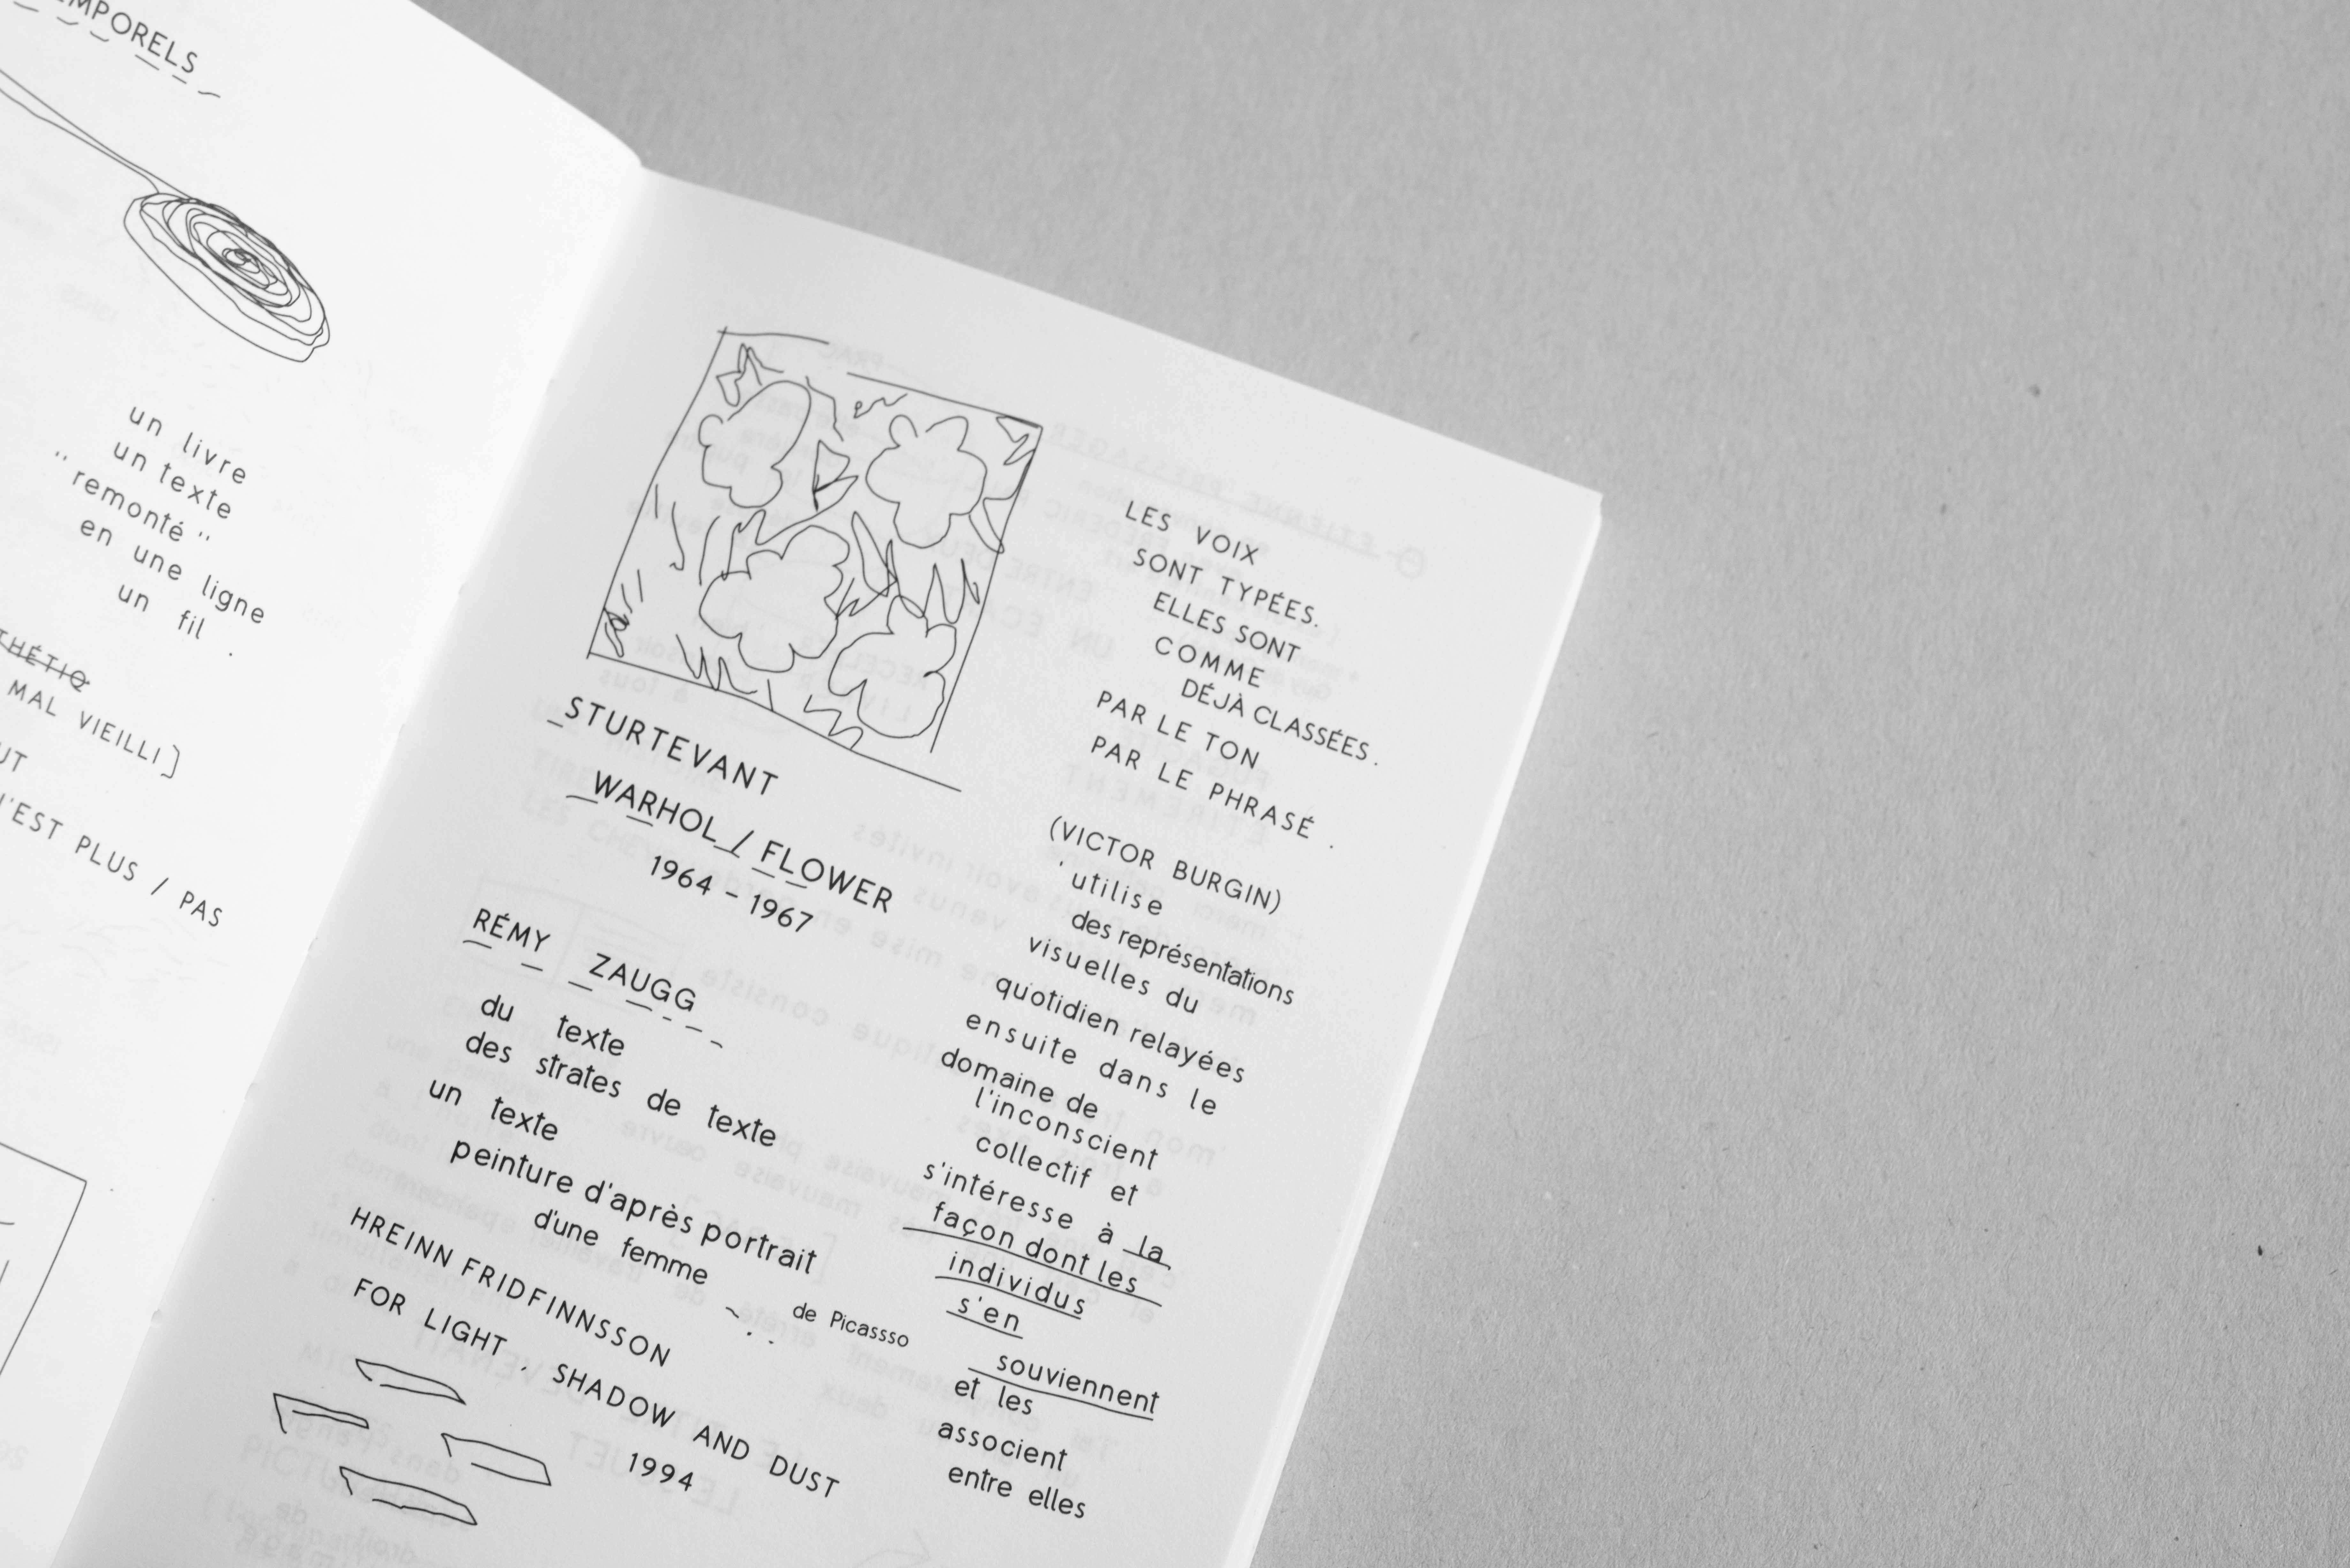 un livre
un texte
"remonté"
en une ligne
un fil .
MAL VIEILLI]
N'EST PLUS / PAS
STURTEVANT
WARHOL / FLOWER
1964 - 1967
RÉMY ZAUGG
du texte
des strates de texte
un texte
peinture d'après portrait
d'une femme
de Picassso
HREINN FRIDFINNSSON
FOR LIGHT , SHADOW AND DUST
1994
LES VOIX
SONT TYPÉES.
ELLES SONT
COMME
DÉJÀ CLASSÉES.
PAR LE TON
PAR LE PHRASÉ .
(VICTOR BURGIN)
'utilise
des représentations
visuelles du
quotidien relayées
ensuite dans le
domaine de
l'inconscient
collectif et
s'intéresse à la
façon dont les
individus
s'en
souviennent
et les
associent
entre elles